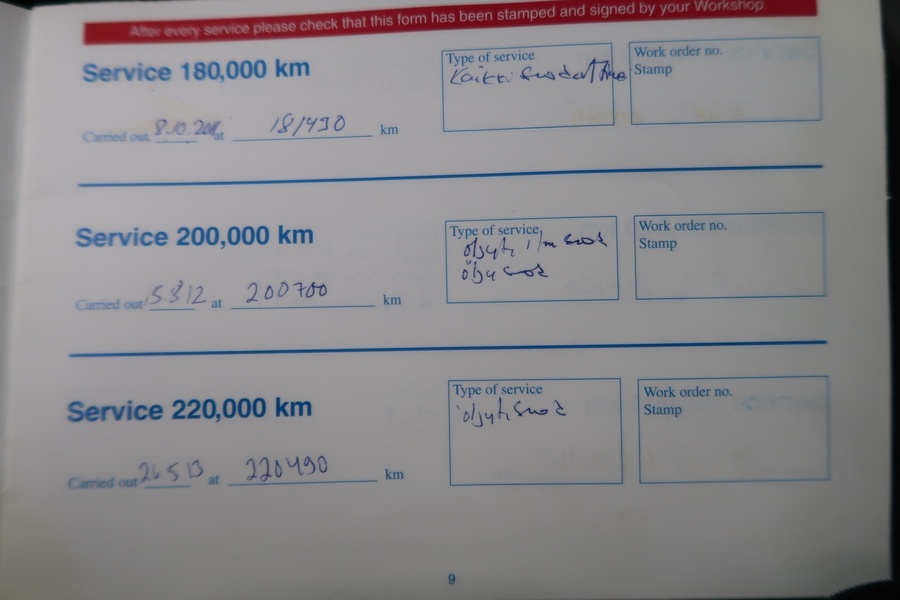 After every service please check that this form has been stamped and signed by your Workshop.
Service 180,000 km
Type of service
Kaikki
Work order no.
Stamp
Carried out 8.10.2011 at 181430 km
Service 200,000 km
Type of service
öljyt, i/m suod
öljy suod
Work order no.
Stamp
Carried out 15.8.12 at 200700 km
Service 220,000 km
Type of service
öljyt, suod
Work order no.
Stamp
Carried out 26.5.13 at 220490 km
9